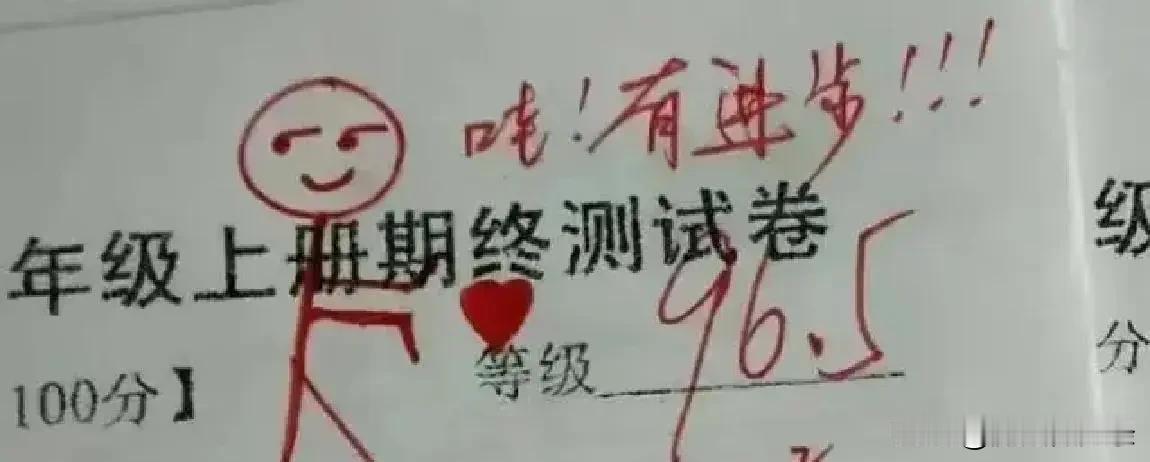 哇！有进步！！！
年级上册期终测试卷
级
96.5
等级
100分】
分